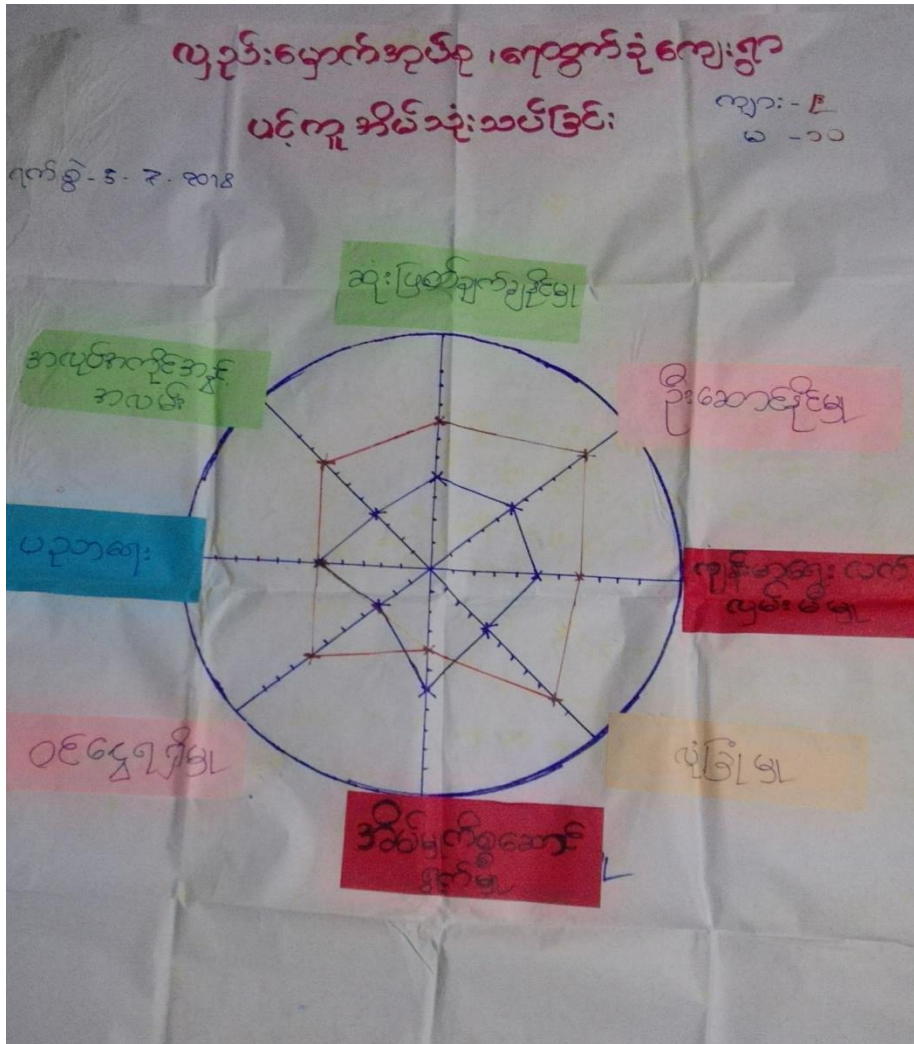 လှည်းမှောက်အုပ်စု ၊ရေထွက်ခုံကျေးရွာ
ပင့်ကူအိမ်သုံးသပ်ခြင်း
ကျား -
မ - ၁၀
ရက်စွဲ - 5 - 7 - 2018
ဆုံးဖြတ်ချက်ချနိုင်မှု
အလုပ်အကိုင်အခွင့်
အလမ်း
ဦးဆောင်နိုင်မှု
ပညာရေး
ကျန်းမာရေး လက်
လှမ်းမီမှု
ဝင်ငွေရရှိမှု
လုံခြုံမှု
အိမ်မှုကိစ္စဆောင်
ရွက်မှု